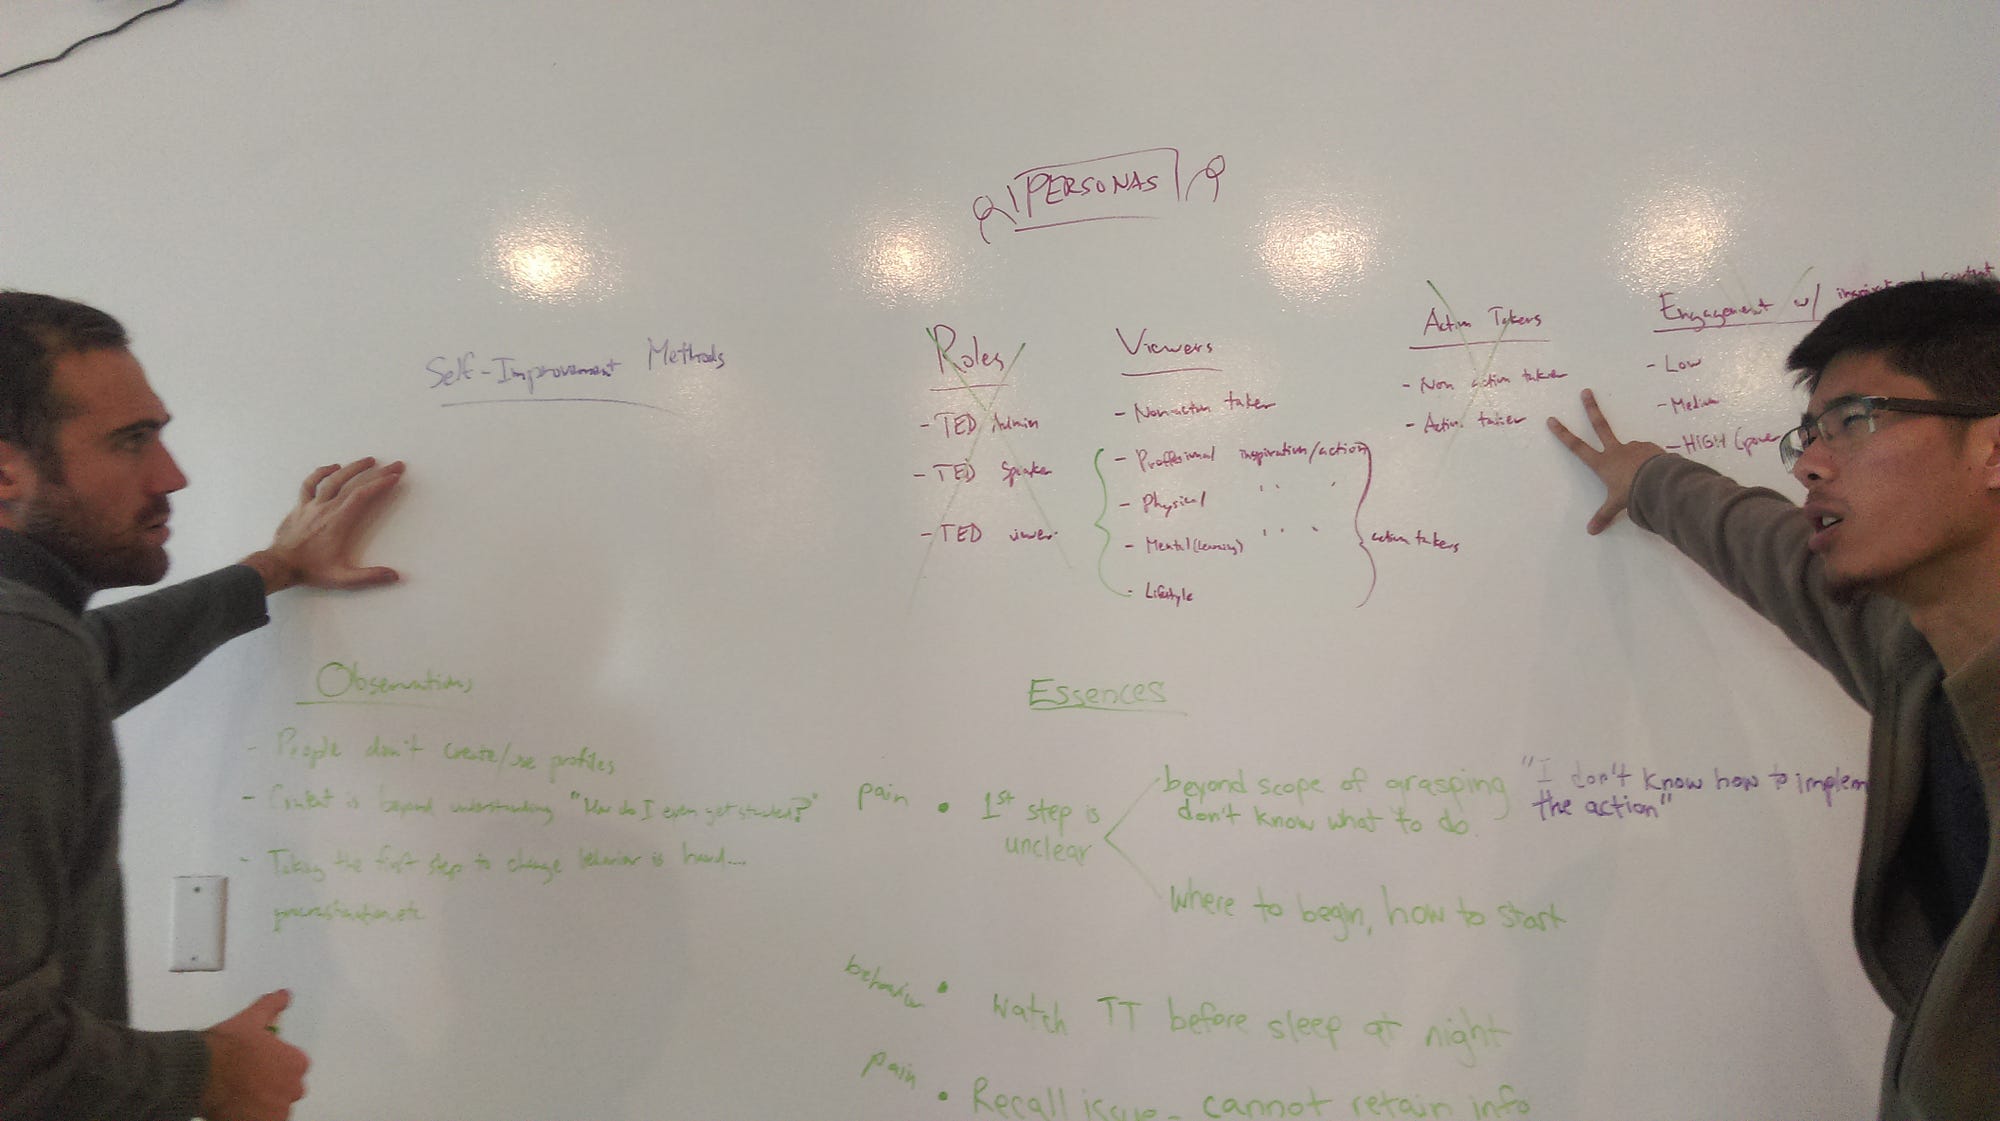 PERSONAS
Self-Improvement Methods
Roles
- TED Admin
- TED Speaker
- TED viewer
Viewers
- Non-action taker
- Proffesional inspiration/action
- Physical " "
- Mental (learning) " "
- Lifestyle
action takers
Action Takers
- Non action taker
- Action taker
Engagement w/
- Low
- Medium
- HIGH (power
Observations
- People don't create/use profiles
- Content is beyond understanding "How do I even get started?"
- Taking the first step to change behavior is hard...
procrastination, etc
Essences
pain • 1st step is
unclear
beyond scope of grasping
don't know what to do.
"I don't know how to implem
the action"
where to begin, how to start
behavior • Watch TT before sleep at night
pain • Recall issue - cannot retain info